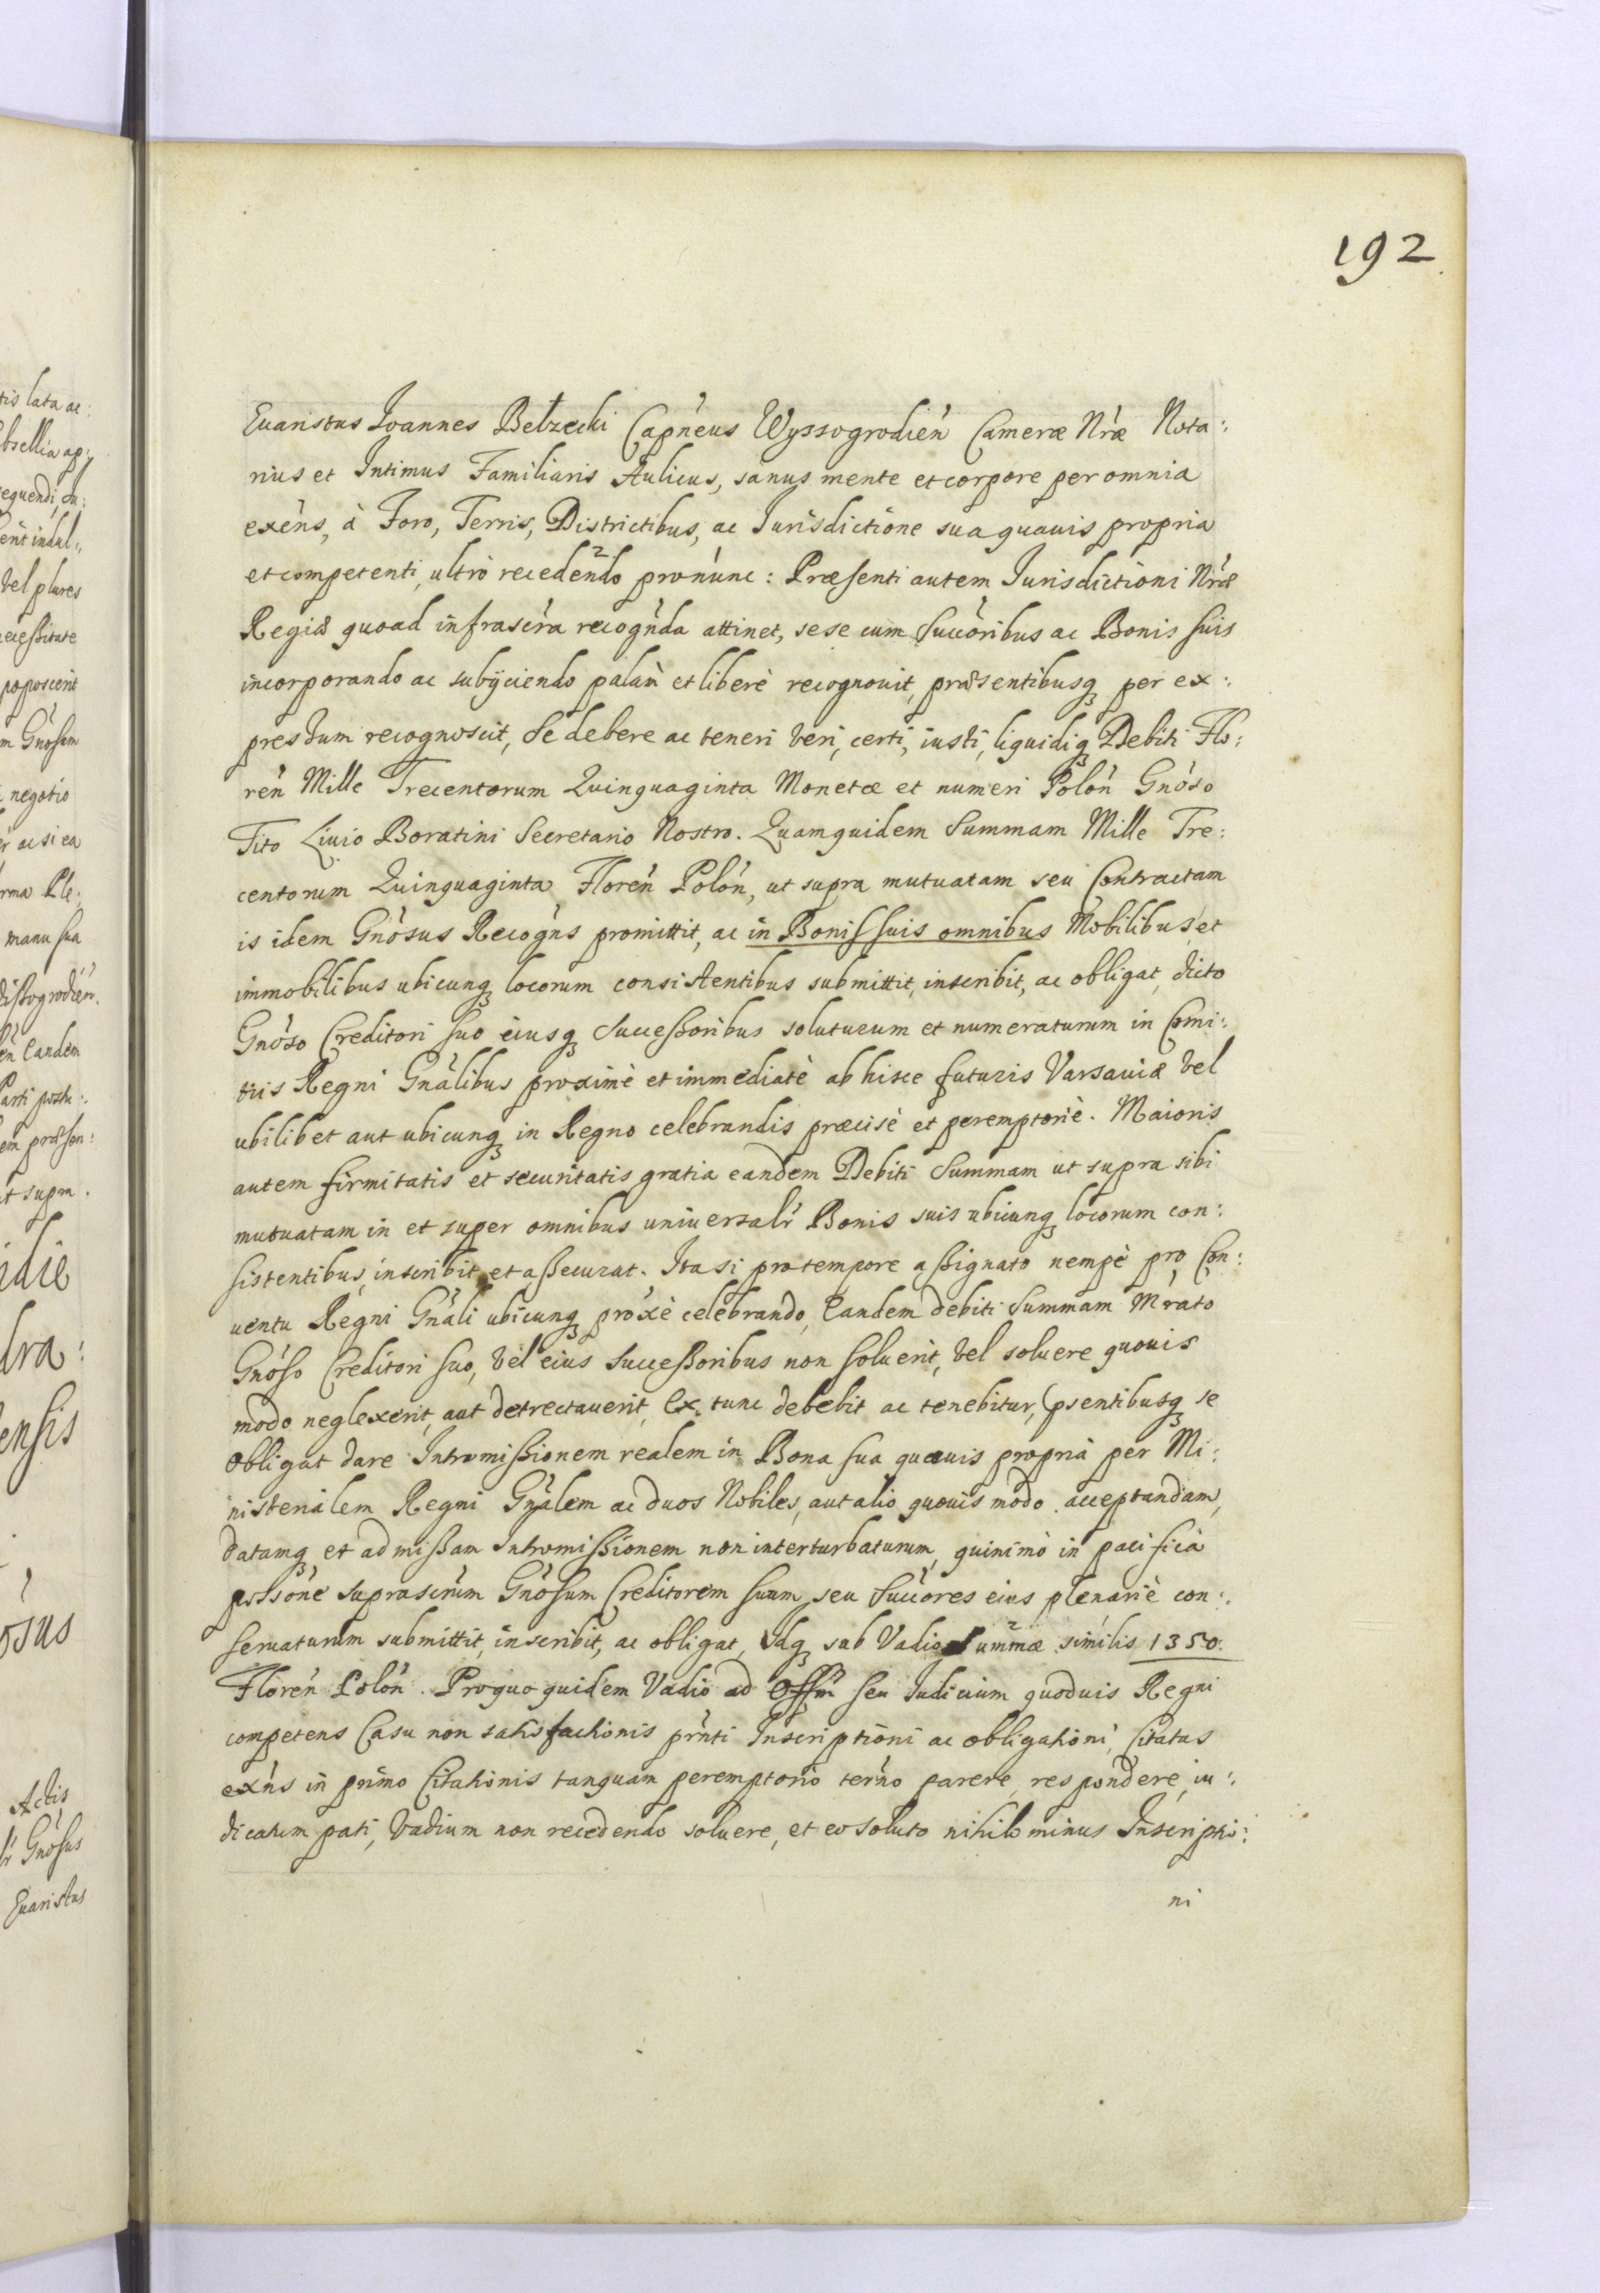 192
Euaristus Joannes Bełzecki Capneus Wyssogrodien Cameræ Nræ Nota:
rius et Intimus Familiaris Aulicus, sanus mente et corpore per omnia
exens, à Foro, Terris, Districtibus, ac Jurisdictione sua quauis propria
et competenti ultrò recedendo pronunc: Præsenti autem Jurisdictioni Nræ
Regiæ quoad infrascra recognda attinet, sese cum Succoribus ac Bonis suis
incorporando ac subÿciendo palam et liberè recognouit, præsentibusq per ex:
pressum recognoscit, Se debere ac teneri veri, certi, iusti, liquidiq Debiti Flo:
ren Mille Trecentorum Quinquaginta Monetæ et numeri Polon Gnoso
Tito Liuio Boratini Secretario Nostro. Quamquidem Summam Mille Tre:
centorum Quinquaginta Floren Polon, ut supra mutuatam seu Contractam
is idem Gnosus Recogns promittit, ac in Bonis suis omnibus Mobilibus, et
immobilibus ubicunq locorum consistentibus submittit, inscribit, ac obligat, dicto
Gnoso Creditori suo eiusq Successoribus soluturum et numeraturum in Comi:
tiis Regni Gnalibus proximè et immediatè ab hisce futuris Varsauiæ vel
ubilibet aut ubicunq in Regno celebrandis præcisè et peremptoriè. Maioris
autem firmitatis et securitatis gratia eandem Debiti Summam ut supra sibi
mutuatam in et super omnibus uniuersalr Bonis suis ubicunq locorum con:
sistentibus, inscribit et assecurat. Ita si pro tempore assignato nempè pro Con:
uentu Regni Gnali ubicunq proxè celebrando, Eandem debiti Summam Mrato
Gnoso Creditori suo, vel eius Successoribus non soluerit, vel soluere quouis
modo neglexerit, aut detrectauerit, Ex tunc debebit ac tenebitur, psentibusq se
obligat dare Intromissionem realem in Bona sua quæuis propria per Mi:
nisterialem Regni Gnalem ac duos Nobiles, aut alio quouis modo acceptandam,
datamq et admissam Intromissionem non interturbaturum, quinimò in pacifica
possone suprascrum Gnosum Creditorem suum, seu Succores eius plenariè con:
seruaturum submittit, inscribit, ac obligat, Idq sub Vadio Summæ similis 1350.
Floren Polon. Pro quo quidem Vadio ad Offm seu Judicium quoduis Regni
competens Casu non satisfactionis prnti Inscriptioni ac obligationi, Citatus
exns in primo Citationis tanquam peremptorio terno parere, respondere, iu:
dicatum pati, Vadium non recedendo soluere, et eo soluto nihilominus Inscriptio:
ni